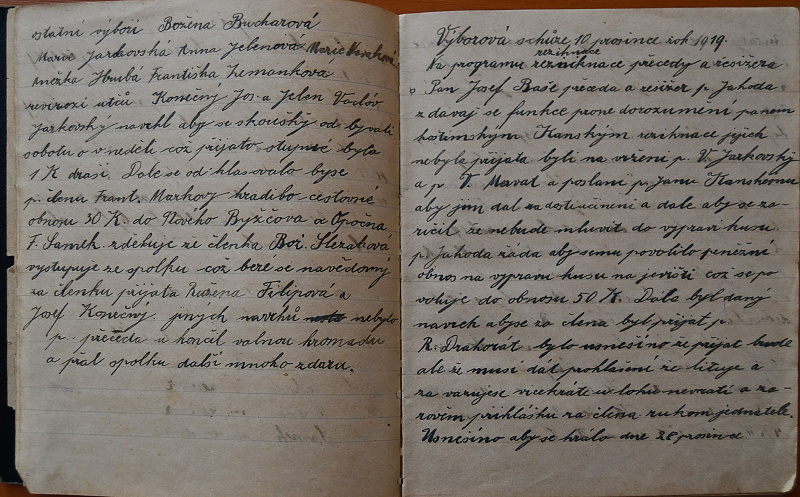 ostatní výboři Božena Bucharová
Marie Jarkovská Anna Jelenová Marie
Anežka Hrubá Františka Zemanková
revizoři učtů Konečný Jos. a Jelen Vaclav
Jarkovský navrhl aby se skoušky od byvali
sobotu o v neděli což přijato stupné byla
1 K draší. Dale se od hlasovalo byse
p. členu Frant. Markovy hradilo cestovné
obnosu 30 K. do Nového Byžčova a Opočna
F. Šámek zděluje že členka Bož. Slezaková
vystupuje ze spolku což beré se navědomý
za členku přijata Ružena Filipová a
Josef Konečný. jiných navrhů nebylo
p. předseda u končil valnou hromadu
a přál spolku další mnoho zdaru.
Výborová schůze 10 prosince rok 1919.
reziknace
Na programu přecedy a režizera
Pan Josef Baše přeceda a režizer p. Jahoda
zdavaj se funkce prone dorozumění panem
hostimským Kanským reziknace jejich
nebyla přijata byli na vrženi p. V. Jarkovský
a p. V. Mavat a poslani p. Janu Kanskemu
aby jim dal zadostiučineni a dale aby se za-
ručil že nebude mluvit do výpravi kusu.
p. Jahoda žáda aby semu povolilo peněžní
obnos na vypravu kusu na jevišti což se po
voluje do obnosu 50 K. Dala byl daný
navrch abyse za člena byl přijat p.
R. Drahorát bylo usnešino že přijat bude
ale že musí dát prohlášení že lituje a
za vazujese vícekráte u lohu nevrati a za-
rověm přihlášku za člena rukom jednatele.
Usnešíno aby se hrálo dne 28 prosince